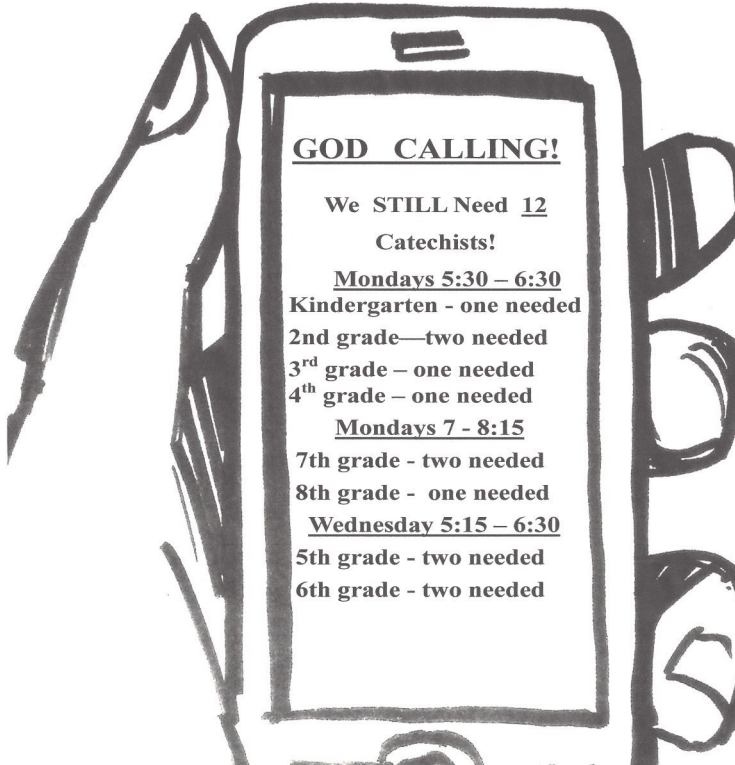 GOD CALLING!
We STILL Need 12
Catechists!
Mondays 5:30 – 6:30
Kindergarten - one needed
2nd grade—two needed
3rd grade – one needed
4th grade – one needed
Mondays 7 - 8:15
7th grade - two needed
8th grade - one needed
Wednesday 5:15 – 6:30
5th grade - two needed
6th grade - two needed